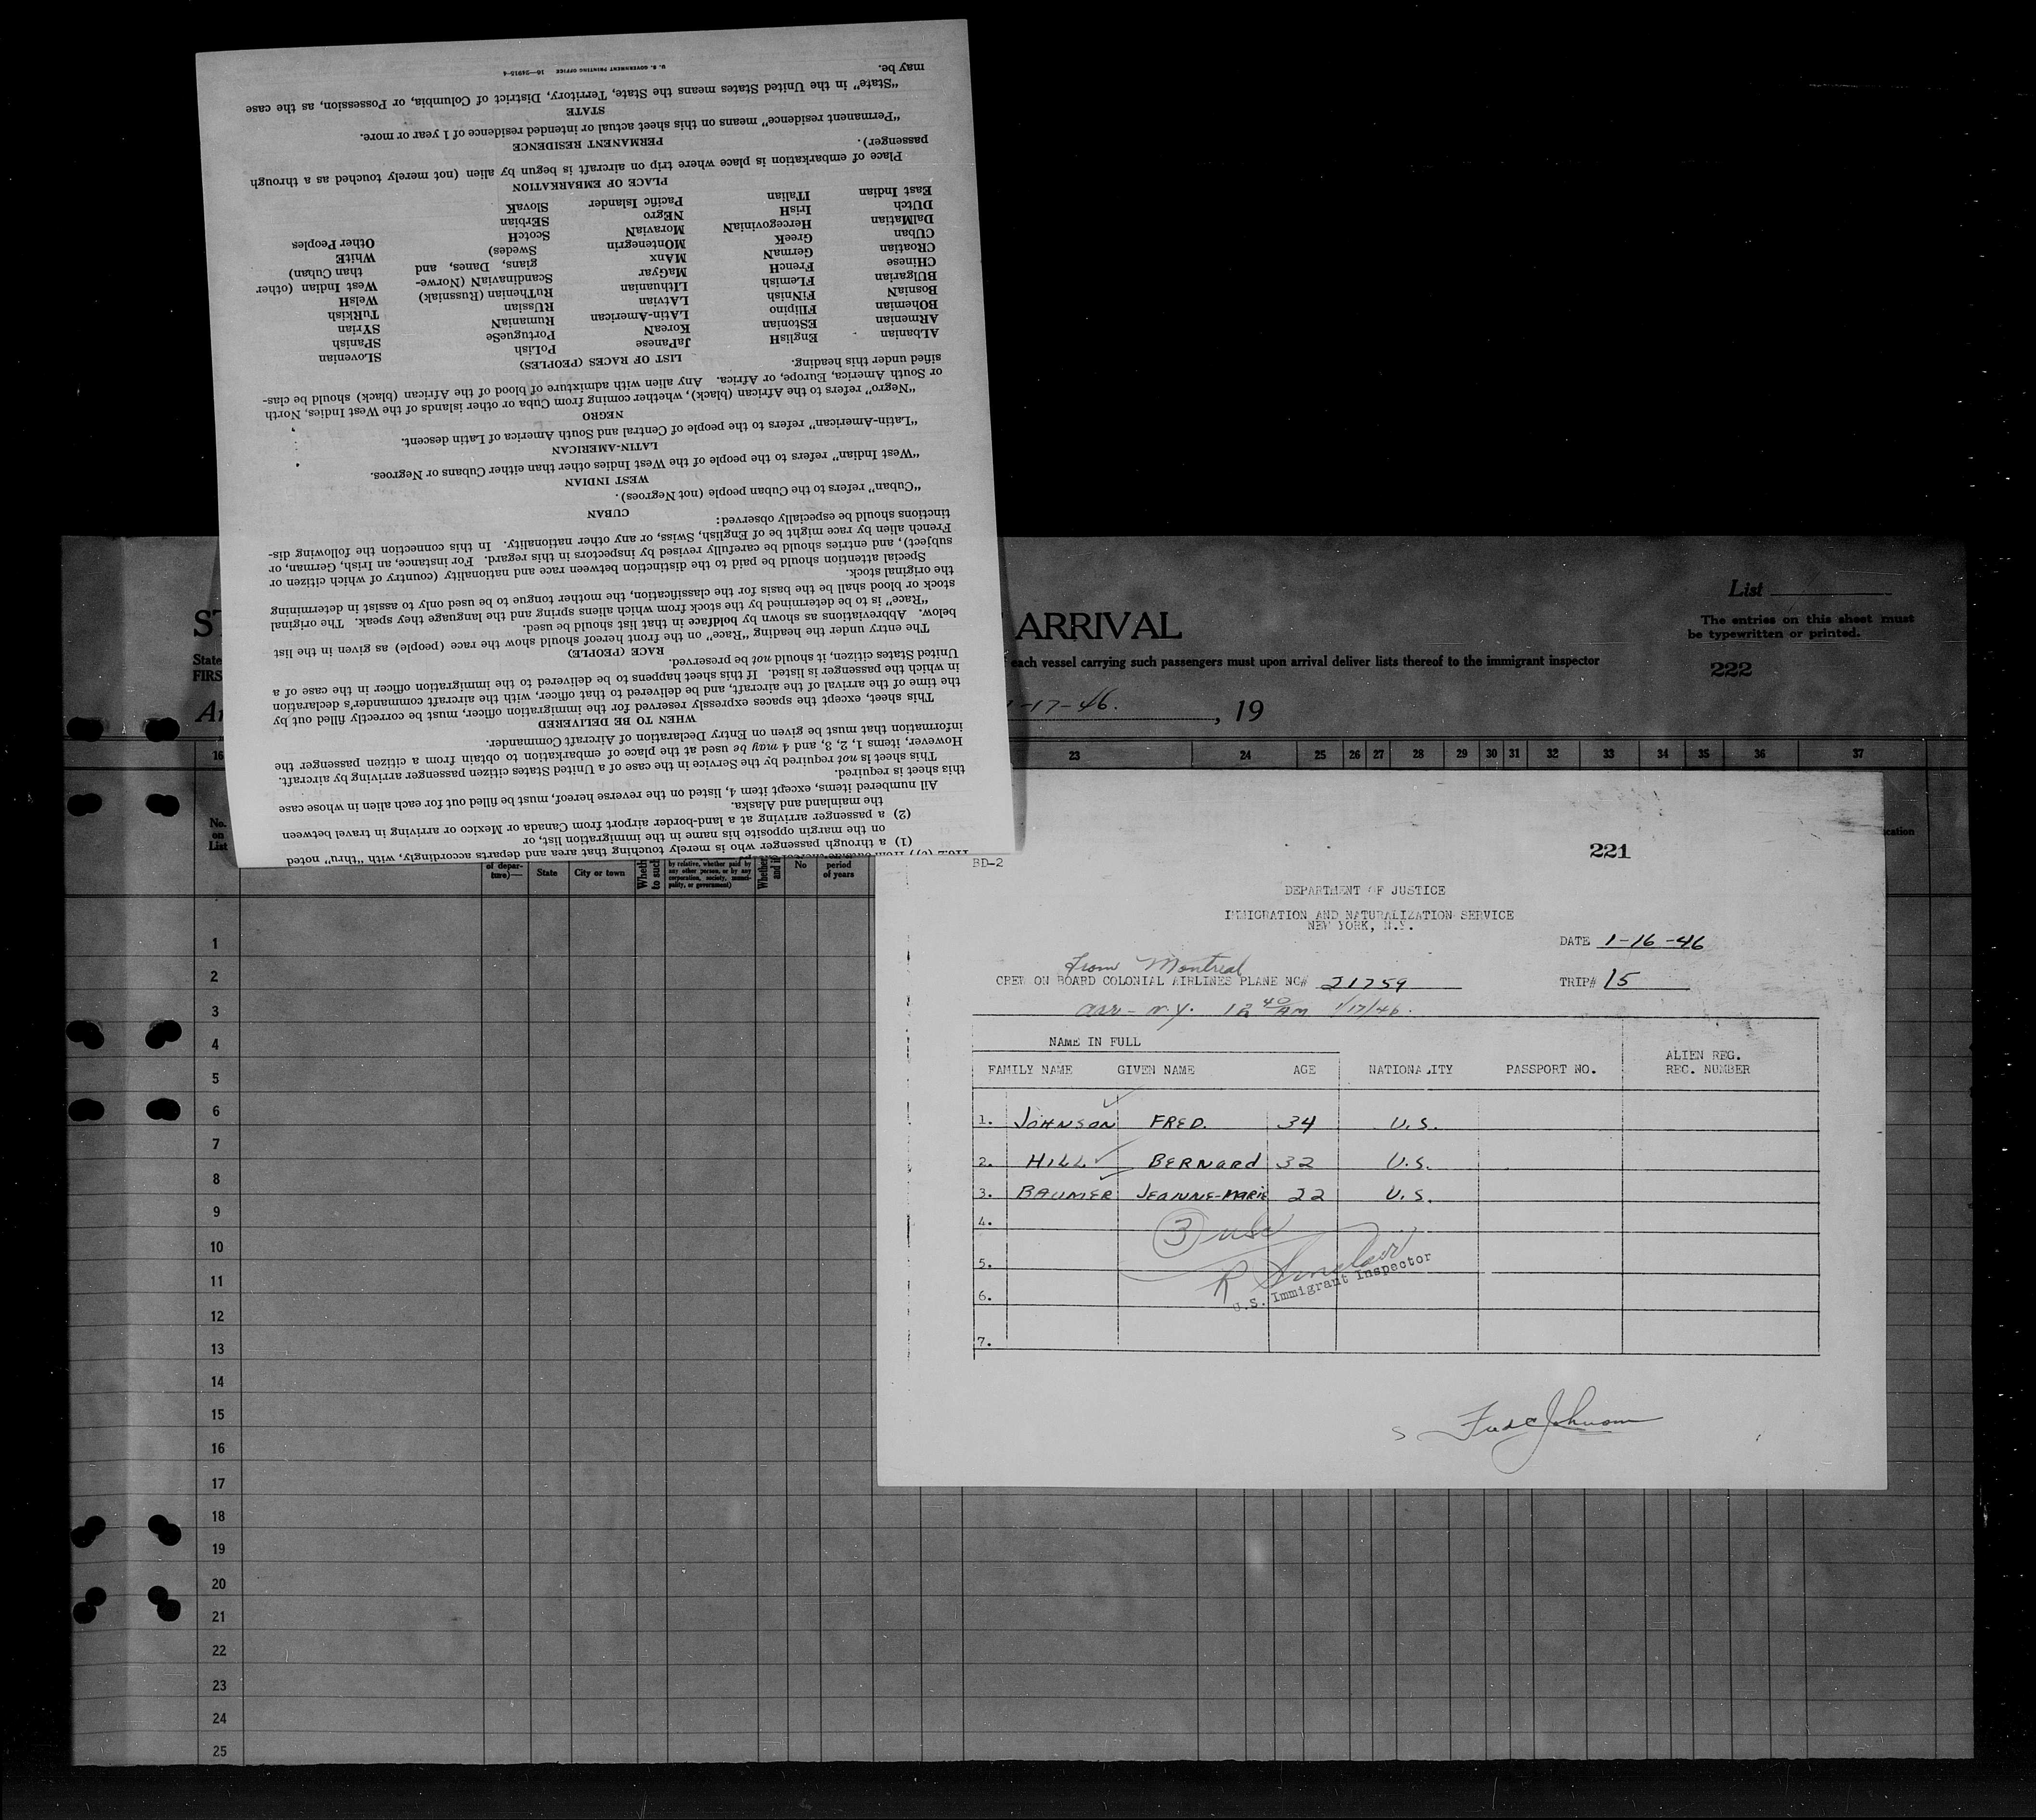 All numbered items, except item 4, listed on the reverse hereof, must be filled out for each alien in whose case
this sheet is required.
(1) a through passenger who is merely touching that area and departs accordingly, with "thru" noted
on the margin opposite his name in the immigration list, or
(2) a passenger arriving at a land-border airport from Canada or Mexico or arriving in travel between
the mainland and Alaska.
This sheet is not required by the Service in the case of a United States citizen passenger arriving by aircraft.
However, items 1, 2, 3, and 4 may be used at the place of embarkation to obtain from a citizen passenger the
information that must be given on Entry Declaration of Aircraft Commander.
WHEN TO BE DELIVERED
This sheet, except the spaces expressly reserved for the immigration officer, must be correctly filled out by
the time of the arrival of the aircraft, and be delivered to that officer, with the aircraft commander's declaration
in which the passenger is listed. If this sheet happens to be delivered to the immigration officer in the case of a
United States citizen, it should not be preserved.
RACE (PEOPLE)
The entry under the heading "Race" on the front hereof should show the race (people) as given in the list
below. Abbreviations as shown by boldface in that list should be used.
"Race" is to be determined by the stock from which aliens spring and the language they speak. The original
stock or blood shall be the basis for the classification, the mother tongue to be used only to assist in determining
the original stock.
Special attention should be paid to the distinction between race and nationality (country of which citizen or
subject), and entries should be carefully revised by inspectors in this regard. For instance, an Irish, German, or
French alien by race might be of English, Swiss, or any other nationality. In this connection the following dis-
tinctions should be especially observed:
CUBAN
"Cuban" refers to the Cuban people (not Negroes).
WEST INDIAN
"West Indian" refers to the people of the West Indies other than either Cubans or Negroes.
LATIN-AMERICAN
"Latin-American" refers to the people of Central and South America of Latin descent.
NEGRO
"Negro" refers to the African (black), whether coming from Cuba or other islands of the West Indies, North
or South America, Europe, or Africa. Any alien with admixture of blood of the African (black) should be clas-
sified under this heading.
LIST OF RACES (PEOPLES)
ALbanian EnglisH JaPanese PoLish SLovenian
ARmenian EStonian KoreaN PortugueSe SPanish
BOhemian FIlipino LAtin-American RumaniaN SYrian
BosniaN FiNish LAtvian RUssian TuRkish
BUlgarian FLemish LIthuanian RuThenian (Russniak) WelsH
CHinese FrencH MaGyar ScandinaviaN (Norwe- West Indian (other
CRoatian GermaN MAnx gians, Danes, and than Cuban)
CUban GreeK MOntenegrin Swedes) WhitE
DalMatian HercegoviniaN MoraviaN ScotcH Other Peoples
DUtch IrisH NEgro SErbian
East Indian ITalian Pacific Islander SlovaK
PLACE OF EMBARKATION
Place of embarkation is place where trip on aircraft is begun by alien (not merely touched as a through
passenger).
PERMANENT RESIDENCE
"Permanent residence" means on this sheet actual or intended residence of 1 year or more.
STATE
"State" in the United States means the State, Territory, District of Columbia, or Possession, as the case
may be.
U. S. GOVERNMENT PRINTING OFFICE 16—24915-4
List
The entries on this sheet must
be typewritten or printed.
ARRIVAL
State
each vessel carrying such passengers must upon arrival deliver lists thereof to the immigrant inspector
FIRS
222
-17-46. , 19
16 23 24 25 26 27 28 29 30 31 32 33 34 35 36 37
No.
on
List
of depar-
ture)—
State
City or town
by relative, whether paid by
any other person, or by any
corporation, society, munici-
pality, or government)
No
period
of years
1
2
3
4
5
6
7
8
9
10
11
12
13
14
15
16
17
18
19
20
21
22
23
24
25
BD-2
221
DEPARTMENT OF JUSTICE
IMMIGRATION AND NATURALIZATION SERVICE
NEW YORK, N.Y.
DATE 1-16-46
from Montreal
CREW ON BOARD COLONIAL AIRLINES PLANE NC# 21759 TRIP# 15
arr - N.Y. 12 40 AM 1/17/46.
NAME IN FULL
FAMILY NAME GIVEN NAME AGE NATIONALITY PASSPORT NO. ALIEN REG.
REG. NUMBER
1. JOHNSON FRED. 34 U.S.
2. HILL BERNARD 32 U.S.
3. BAUMER JEANNE-MARIE 22 U.S.
4.
3 usc
5.
R Sinclair
U.S. Immigrant Inspector
6.
7.
Fred C Johnson